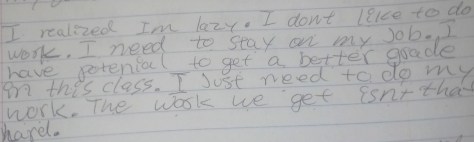 I realized Im lazy. I dont like to do
work. I need to stay on my Job. I
have potenial to get a better grade
in this class. I Just need to do my
work. The work we get isnt that
hard.